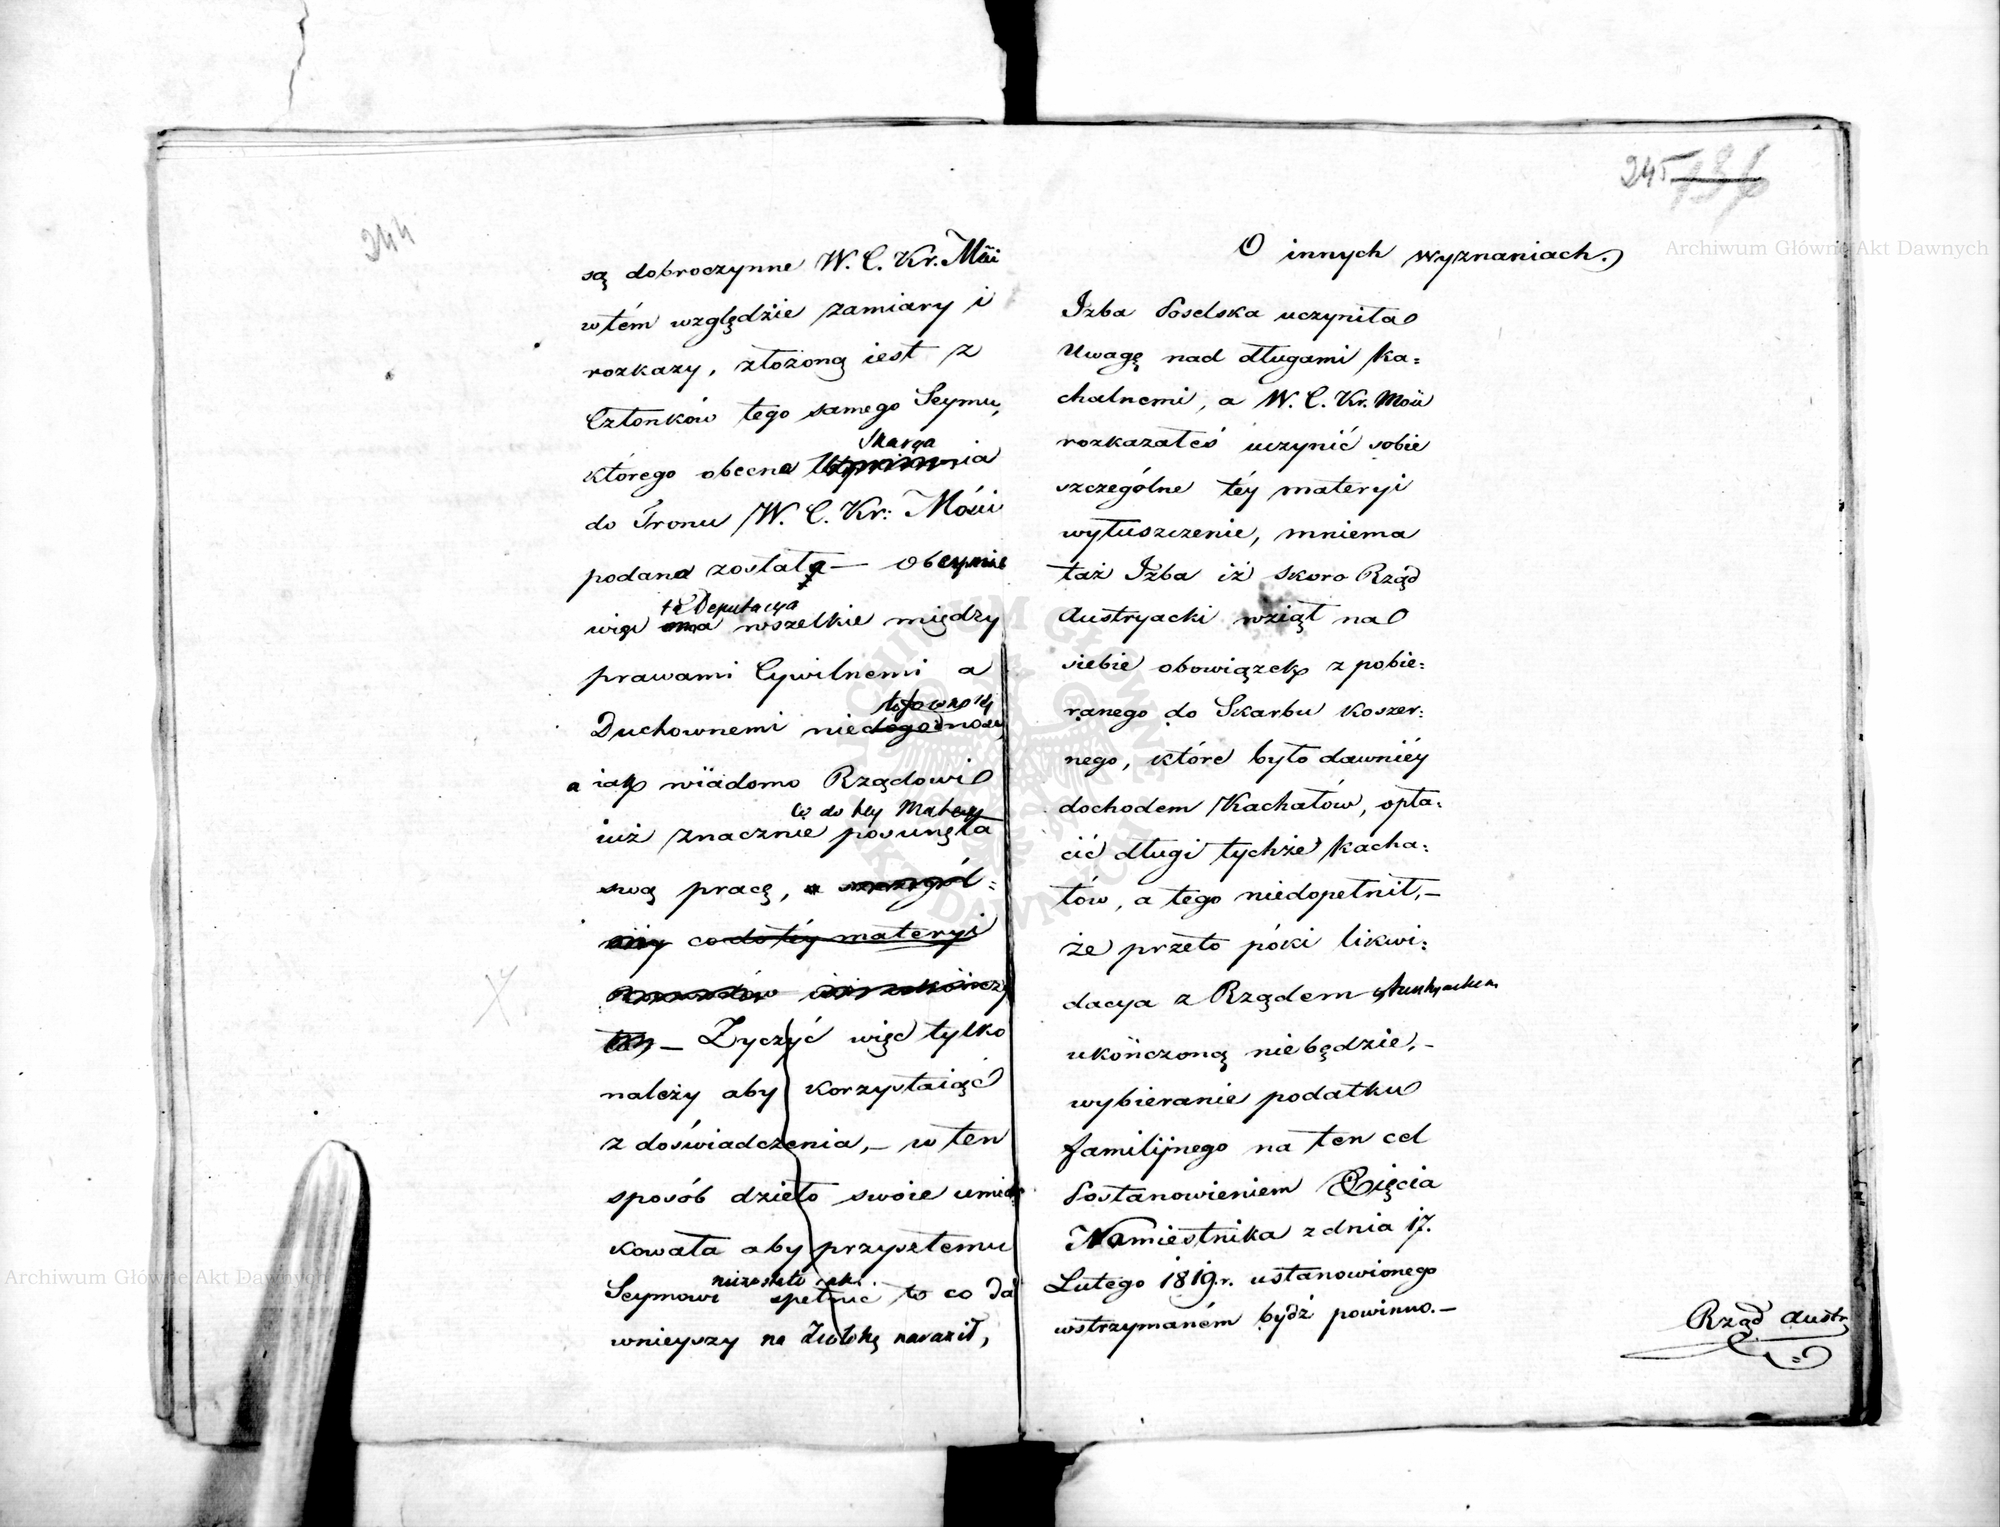 244
są dobroczynne W. C. Kr. Mći
w tém względzie zamiary i
rozkazy, złożoną iest z
Członków tego samego Seymu,
Skarga
którego obecna
do Tronu W. C. Kr: Mości
podana została — obeymie
ta Deputacya
więc ona wszelkie między
prawami Cywilnemi a
stosowności
Duchownemi niedogodności,
a iak wiadomo Rządowi
co do tey Matery
iuż znacznie posunęła
swą pracę, a szczegól=
niey co do téy materyi
Rozwodów
— Życzyć więc tylko
należy aby korzystaiąc
z doświadczenia, — w ten
sposób dzieło swoie umiar
kowała aby przyszłemu
Seymowi spełnić to co da
wnieyszy na zwłokę naraził,
245 136
O innych wyznaniach.
Izba Poselska uczyniła
Uwagę nad długami Ka=
chalnemi, a W. C. Kr. Mość
rozkazałeś uczynić sobie
szczególne téy materyi
wyłuszczenie, mniema
taż Izba iż skoro Rząd
Austryacki wziął na
siebie obowiązek z pobie=
ranego do Skarbu koszer=
nego, które było dawniéy
dochodem Kachałów, opła=
cić długi tychże Kacha=
łów, a tego niedopełnił, —
że przeto póki likwi=
dacya z Rządem Austryackim
ukończoną niebędzie, —
wybieranie podatku
familijnego na ten cel
Postanowieniem Xięcia
Namiestnika z dnia 17.
Lutego 1819. r. ustanowionego
wstrzymaném bydź powinno. —
Rząd Austr
Archiwum Główne Akt Dawnych
Archiwum Główne Akt Dawnych
ARCHIWUM GŁÓWNE AKT DAWNYCH